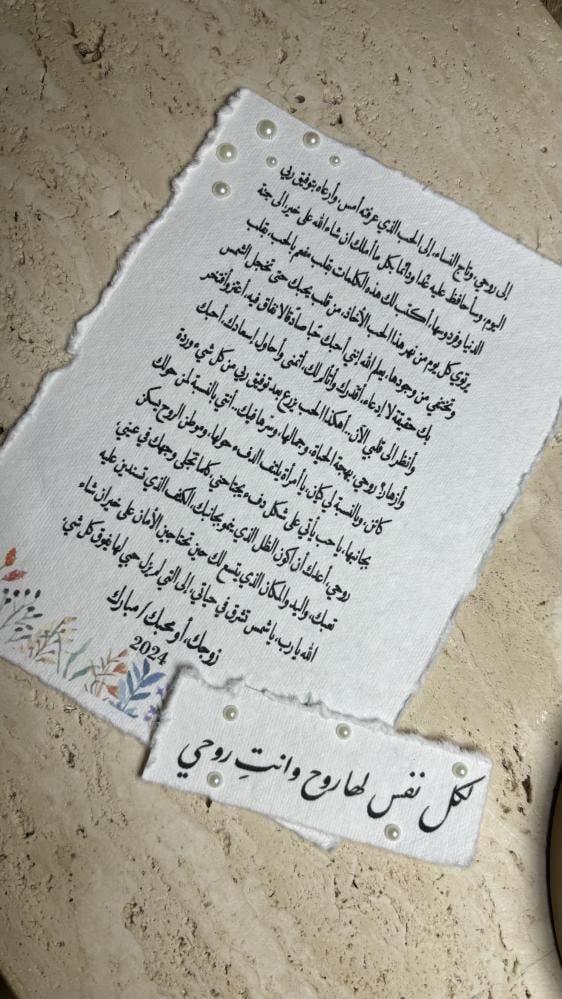 إلى روحي، وتاج النساء، إلى الحب الذي عرفته أمس، وأرعاه بتوفيق ربي
اليوم، وسأحافظ عليه غدًا ودائمًا بكل ما أملك ان شاء الله على خير الى جنة
الدنيا وفردوسها، أكتب لك هذه الكلمات بقلب مفعم بالحب، بقلب
يرتوي كل يوم من نهر هذا الحب الأخاذ، من قلب يحبك حتى تخجل الشمس
وتختفي من وجودها، يعلم الله إنني أحبك حبًا صادقًا لا نفاق فيه، أعتز وأفتخر
بك حقيقة لا إدعاء، أقدرك وأتأثر لك، أتمنى وأحاول إسعادك، أحبك
وأنظر الى قلبي الآن.. أهكذا الحب زرع بعد توفيق ربي من كل شيء وردة
وأزهار؟ روحي، بهجة الحياة، وجمالها، وسرها فيك.. أنتي بالنسبة لمن حولك
كائن، وبالنسبة لي كيان، يا أمرأة يلتف الدفء حولها، وموطن الروح يسكن
بجانبها، يا حب يأتي على شكل دفء يجتاحني كلما تجلى وجهك في عيني،
روحي، أعدك أن أكون الظل الذي بجانبك، الكتف الذي تستندين عليه
تعبك، واليد والمكان الذي يتسع لك حين تحتاجين الأمان على خير ان شاء
الله يا رب، يا شمس تشرق في حياتي، إلى التي لم يزل حبي لها يفوق كل شي.
زوجك، أو محبك / مبارك
2024
لكل نفس لها روح وانتِ روحي